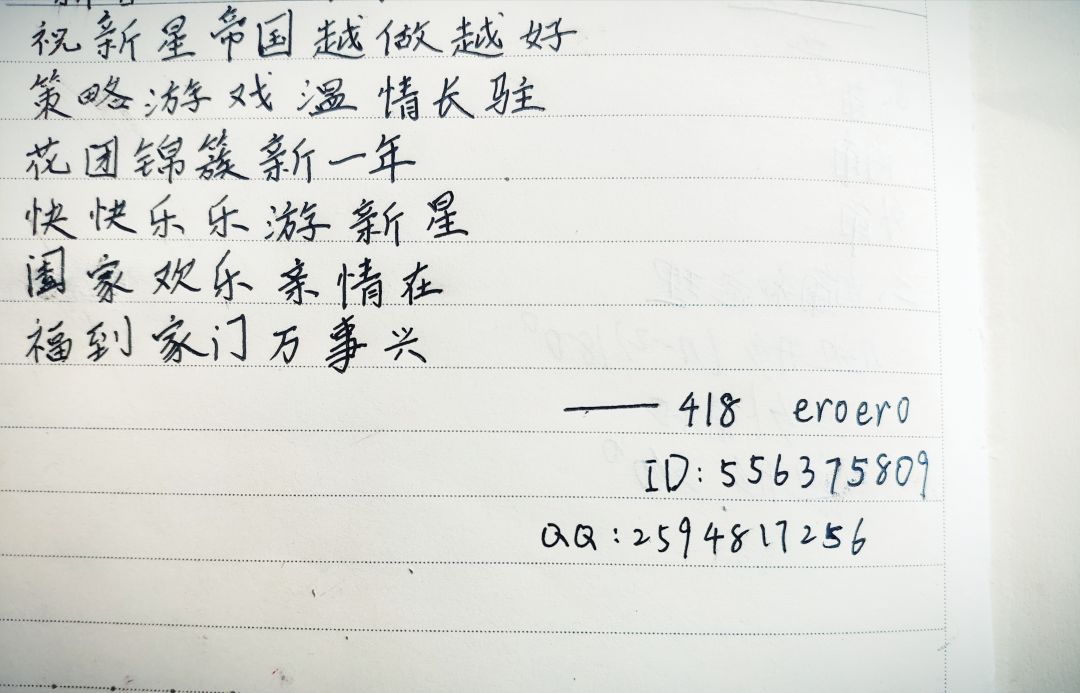 祝新星帝国越做越好
策略游戏温情长驻
花团锦簇新一年
快快乐乐游新星
阖家欢乐亲情在
福到家门万事兴
——418 eroero
ID:556375809
QQ:2594817256